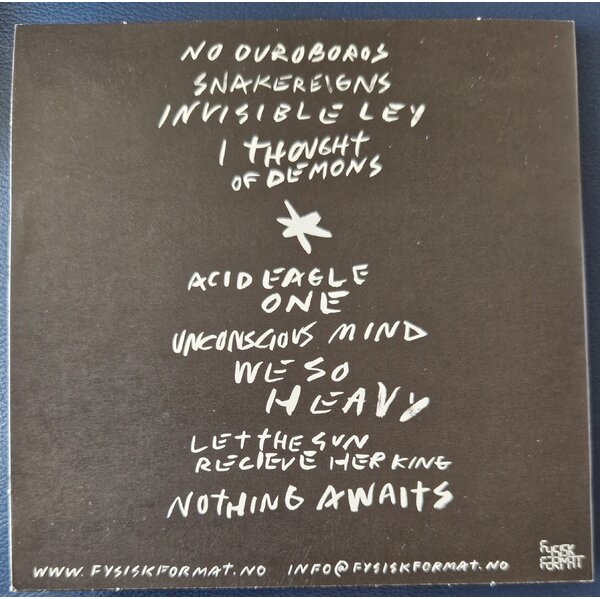 NO OUROBOROS
SNAKEREIGNS
INVISIBLE LEY
I THOUGHT
OF DEMONS
ACID EAGLE
ONE
UNCONSCIOUS MIND
WE SO
HEAVY
LET THE SUN
RECIEVE HER KING
NOTHING AWAITS
WWW.FYSISKFORMAT.NO INFO@FYSISKFORMAT.NO
FYSISK
FORMAT